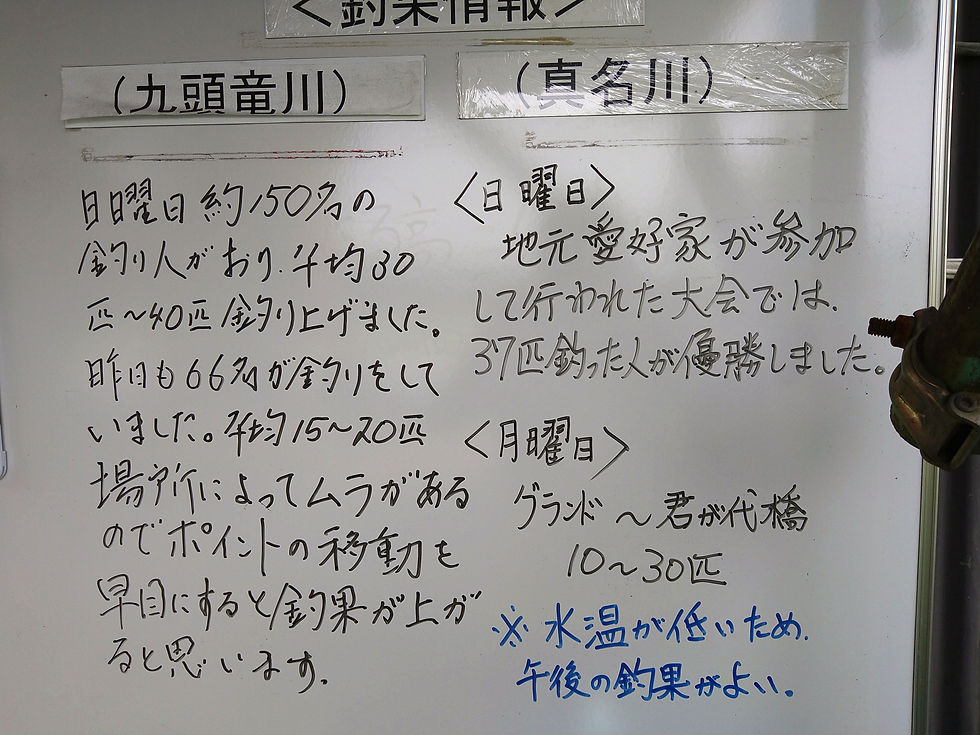 <釣果情報>
(九頭竜川)
日曜日約150名の
釣り人がおり、平均30
匹~40匹釣り上げました。
昨日も66名が釣りをして
いました。平均15~20匹
場所によってムラがある
のでポイントの移動を
早目にすると釣果が上が
ると思います。
(真名川)
<日曜日>
地元愛好家が参加
して行われた大会では、
37匹釣った人が優勝しました。
<月曜日>
グランド~君が代橋
10~30匹
※水温が低いため、
午後の釣果がよい。